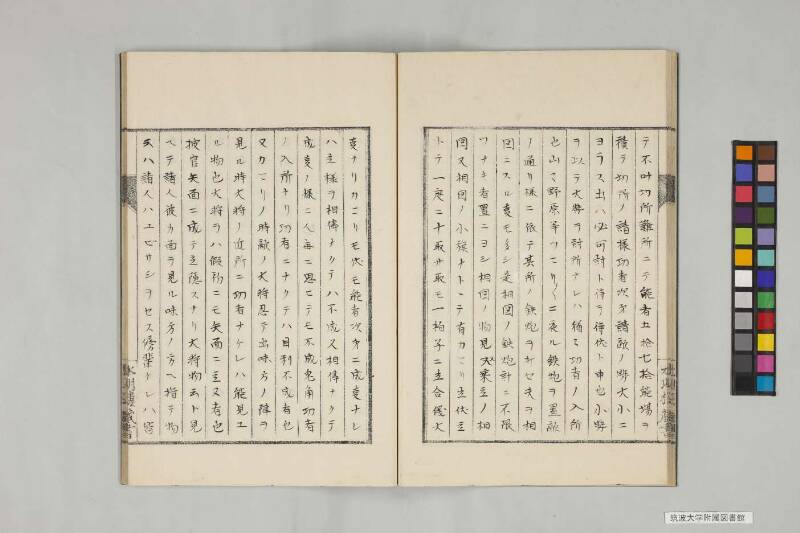 テ不叶切所難所ニテ能者五拾七拾能場ヲ
積テ切所ノ諸様功者次第諸敵ノ勢大小ニ
ヨラス出ハ必可討ト待ヲ待伏ト申也小勢
ヲ以テ大勢ヲ討所ナレハ猶々功者ノ入所
也山里野原等ニ夜ル鉄炮ヲ置敵
ノ通リ様ニ依テ其所ノ鉄炮ヲナセ夫ヲ相
図ニスル事モ多シ是相図ノ鉄炮計ニ不限
ツナキ者置ニヨシ相図ノ物見大乗主ノ相
図又相図ノ小旗ナトヽテ有カマリ主伏主
トテ一度ニ十取廿取モ一拍子ニ主合伐大
事ナリカマリモ伏モ能者次第ニ成事ナレ
ハ主様ヲ相傳ナクテハ不成又相傳ナクテ
成事ノ様ニ人毎ニ思ヒテモ不成兎角功者
ノ入所ナリ功者ニナクテハ目利不成者也
又カマリノ時敵ノ大将忍テ出味方ノ陣ヲ
見ル時大将ノ近所ニ功者ナケレハ能見エ
ル物也大将ヲハ假初ニモ矢面ニ立又者也
披官矢面ニ成テ立隠スナリ大将物云ト見
ヘテ諸人彼カ面ヲ見ル味方ノ方ヘ指テ物
云ハ諸人ハユビサシヲセス傍輩ナレハ
筑波大学附属図書館